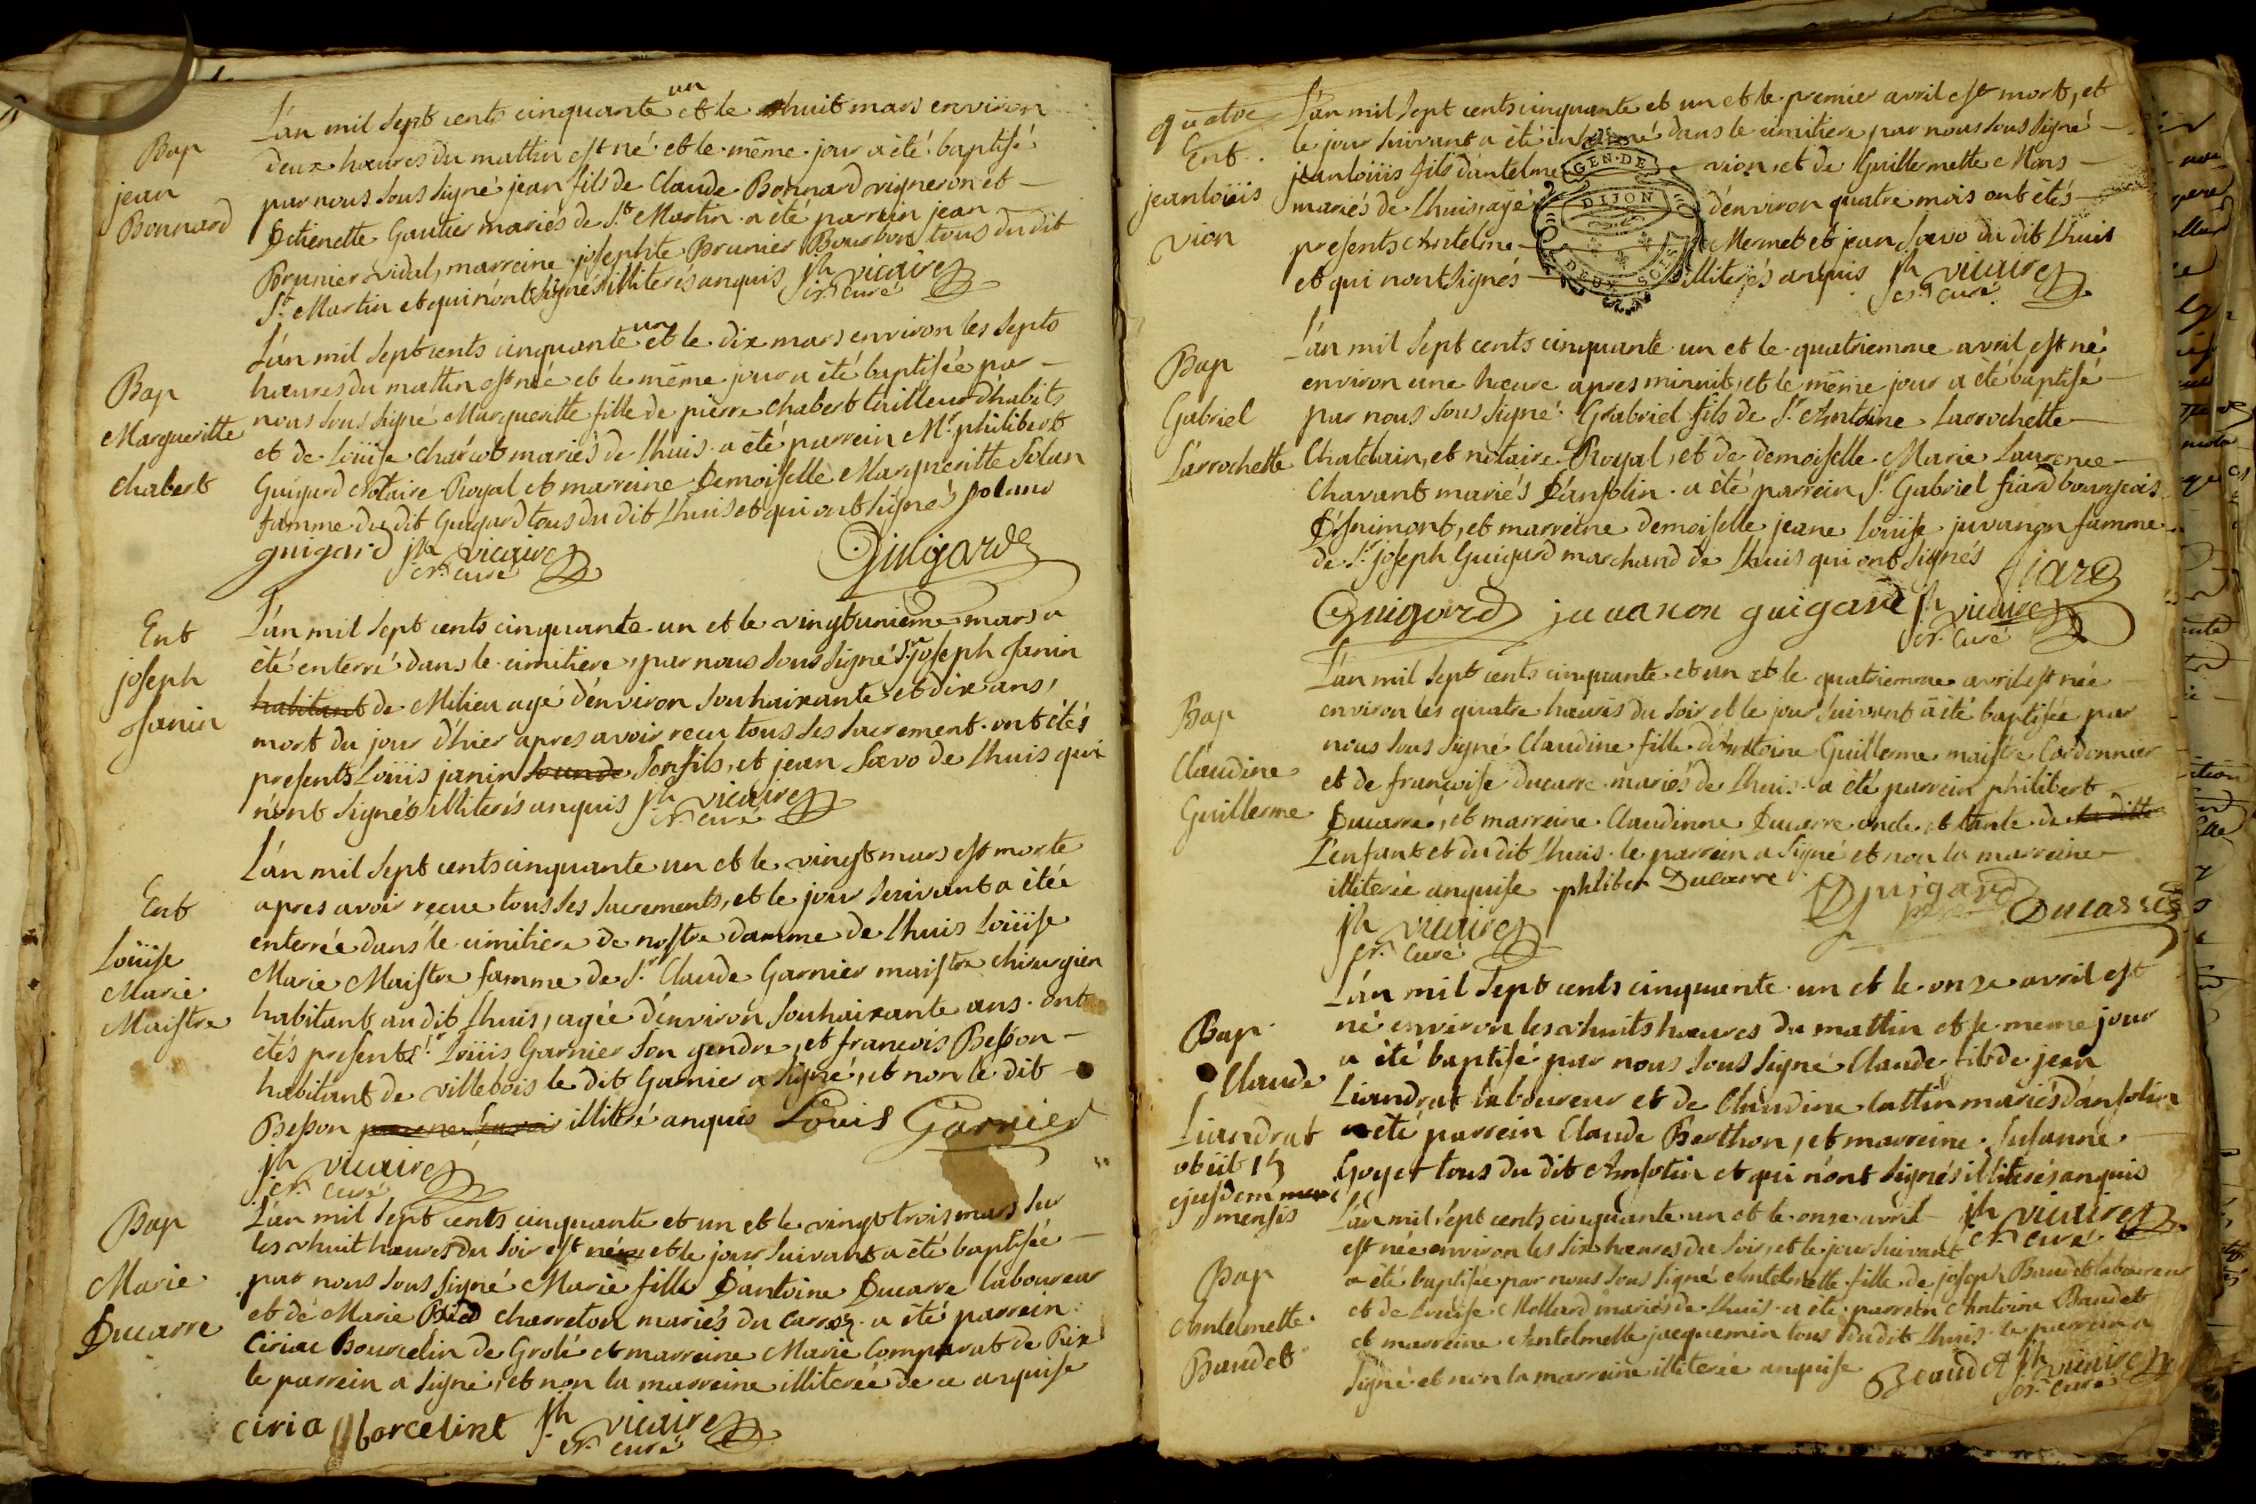 Bap
jean
Bonnard
L'an mil sept cents cinquante un et le huit mars environ
deux hœures du mattin est né et le même jour a été baptisé
par nous sous signé jean fils de Claude Bonnard vigneron et
Detienette Gautier mariés de St Martin a été parrain jean
Brunier vidal, marreine josephte Brunier Bourbon tous du dit
St Martin et qui n'ont signés illiterés anquis jh vicaire
cr. curé
Bap
Margueritte
Chabert
L'an mil sept cents cinquante un et le dix mars environ les septs
hœures du mattin est née et le même jour a été baptisée par
nous sous signé Margueritte fille de pierre chabert tailleur d'habits
et de Loüise charcot mariés de Lhuis a été parrein Mr philibert
Guigard Notaire Royal et marreine Demoiselle Margueritte Solan
famme du dit Guigard tous du dit Lhuis et qui ont signés soland
guigard jh vicaire Guigard
cr. curé
Ent
joseph
Janin
L'an mil sept cents cinquante un et le vingtunieme mars a
été enterré dans le cimitiere, par nous sous signé Sr joseph Janin
habitant de Milieu agé d'environ souhaixante et dix ans,
mort du jour d'hier apres avoir recu tous ses sacrement ont étés
presents Loüis janin son fils, et jean Savo de Lhuis qui
n'ont signés illiterés anquis jh vicaire
cr. curé
Ent
Loüise
Marie
Maistre
L'an mil sept cents cinquante un et le vingt mars est morte
apres avoir reçue tous ses sacrements, et le jour suivant a étée
enterrée dans le cimitiere de nostre damme de Lhuis Loüise
Marie Maistre famme de Sr Claude Garnier maistre chirurgien
habitant au dit Lhuis, agée d'environ souhaixante ans ont
étés presents Sr Loüis Garnier son gendre, et francois Besson
habitant de villebois le dit Garnier a signé, et non le dit
Besson illitéré anquis Louis Garnier
jh vicaire
cr. curé
Bap
Marie
Ducarre
L'an mil sept cents cinquante et un et le vingt trois mars sur
les huit hœures du soir est née et le jour suivant a été baptisée
par nous sous signé Marie fille D'antoine Ducarre laboureur
et de Marie charreton mariés du a été parrein
Ciriac Bourcelin de Grolé et marreine Marie Comparat de Rix
le parrein a signé, et non la marreine illiterée de ce anquise
ciria borcelint jh vicaire
cr. curé
quatre
Ent
jeanloüis
vion
L'an mil sept cents cinquante et un et le premier avril est mort, et
le jour suivant a été inhumé dans le cimitiere par nous sous signé
jeanloüis fils d'antelme vion, et de Guillermette Mons
mariés de Lhuis, agé d'environ quatre mois ont étés
presents Antelme Mermet et jean Savo du dit Lhuis
et qui n'ont signés illiterés anquis jh vicaire
cr. curé
GEN. DE
DIJON
DEUX SOLS
Bap
Gabriel
Larrochette
L'an mil sept cents cinquante un et le quatriemme avril est né
environ une hœure apres minuit, et le même jour a été baptisé
par nous sous signé Gabriel fils de Sr Antoine Larrochette
Chatelain, et notaire Royal, et de demoiselle Marie Laurence
Chavant mariés D'ansolin a été parrein Sr Gabriel fiard bourgeois
D'isnimont, et marreine demoiselle jeane Loüise juvanon famme
de Sr joseph Guigard marchand de Lhuis qui ont signés fiard
Guigard juvanon guigard jh vicaire
cr. curé
Bap
Claudine
Guillerme
L'an mil sept cents cinquante et un et le quatriemme avril est née
environ les quatre hœures du soir et le jour suivant a été baptisée par
nous sous signé Claudine fille d'antoine Guillerme maistre Cordonnier
et de françoise ducarre mariés de Lhuis a été parrein philibert
Ducarre, et marreine Claudinne Ducarre oncle et tante de la ditte
L'enfant et du dit Lhuis le parrein a signé et non la marreine
illiterée anquise phliber Ducarre Guigard
Ducarre
jh vicaire
cr. curé
Bap
Claude
Liandrat
obiit 15
ejusdem
mensis
L'an mil sept cents cinquante un et le onze avril est
né environ les huits hœures du mattin et le meme jour
a été baptisé par nous sous signé Claude fils de jean
Liandrat laboureur et de Claudine Cattin mariés D'ansolin
a été parrein Claude Berthon, et marreine Susanne
Goyet tous du dit Ansolin et qui n'ont signés illiterés anquis
jh vicaire
cr. curé
Bap
Antelmette
Baudet
L'an mil sept cents cinquante un et le onze avril
est née environ les six hœures du soir, et le jour suivant
a été baptisée par nous sous signé Antelmette fille de joseph Baudet laboureur
et de Louise Mollard mariés de Lhuis a été parrein Antoine Baudet
et marreine Antelmette jacquemin tous du dit Lhuis le parrein a
signé et non la marreine illiterée anquise Beaudet jh vicaire
cr. curé